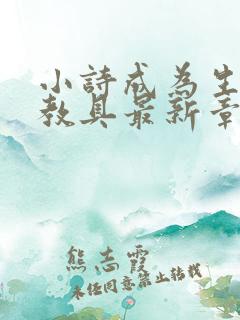 小詩成為生
教具最新章
熊志霞
未任同意禁止轉載